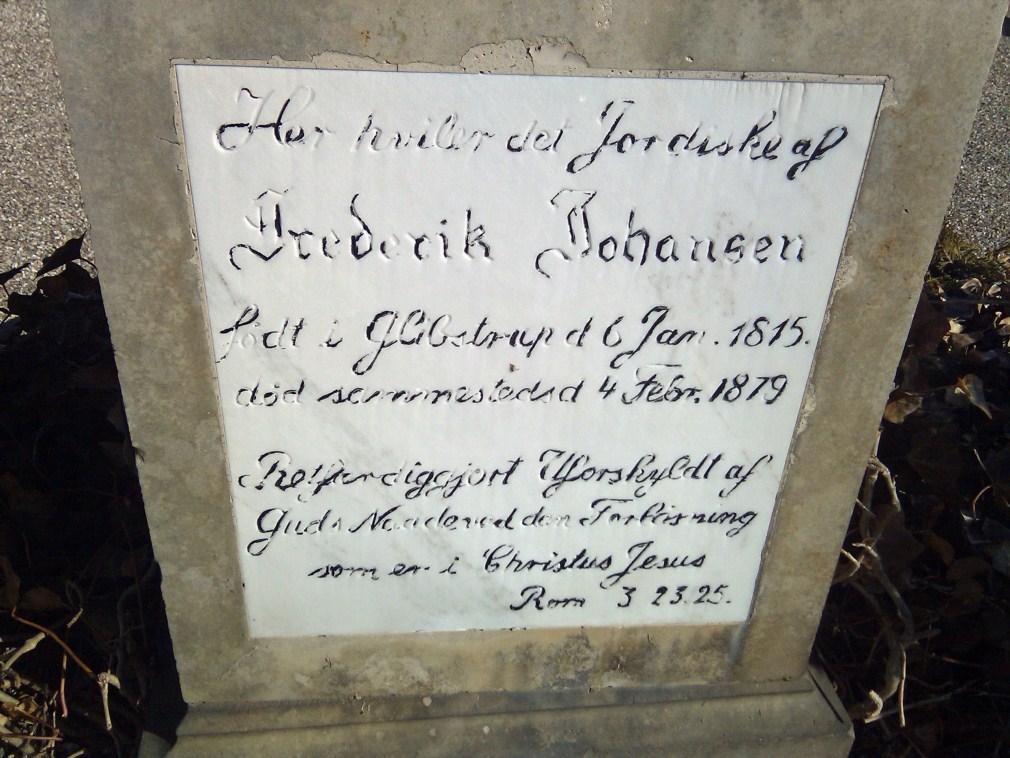 Her hviler det Jordiske af
Frederik Johansen
født i Glibstrup d 6 Jan. 1815.
død sammesteds d 4 Febr. 1879
Retfærdiggjort Uforskyldt af
Guds Naade ved den Forløsning
som er i Christus Jesus
Rom 3 23.25.